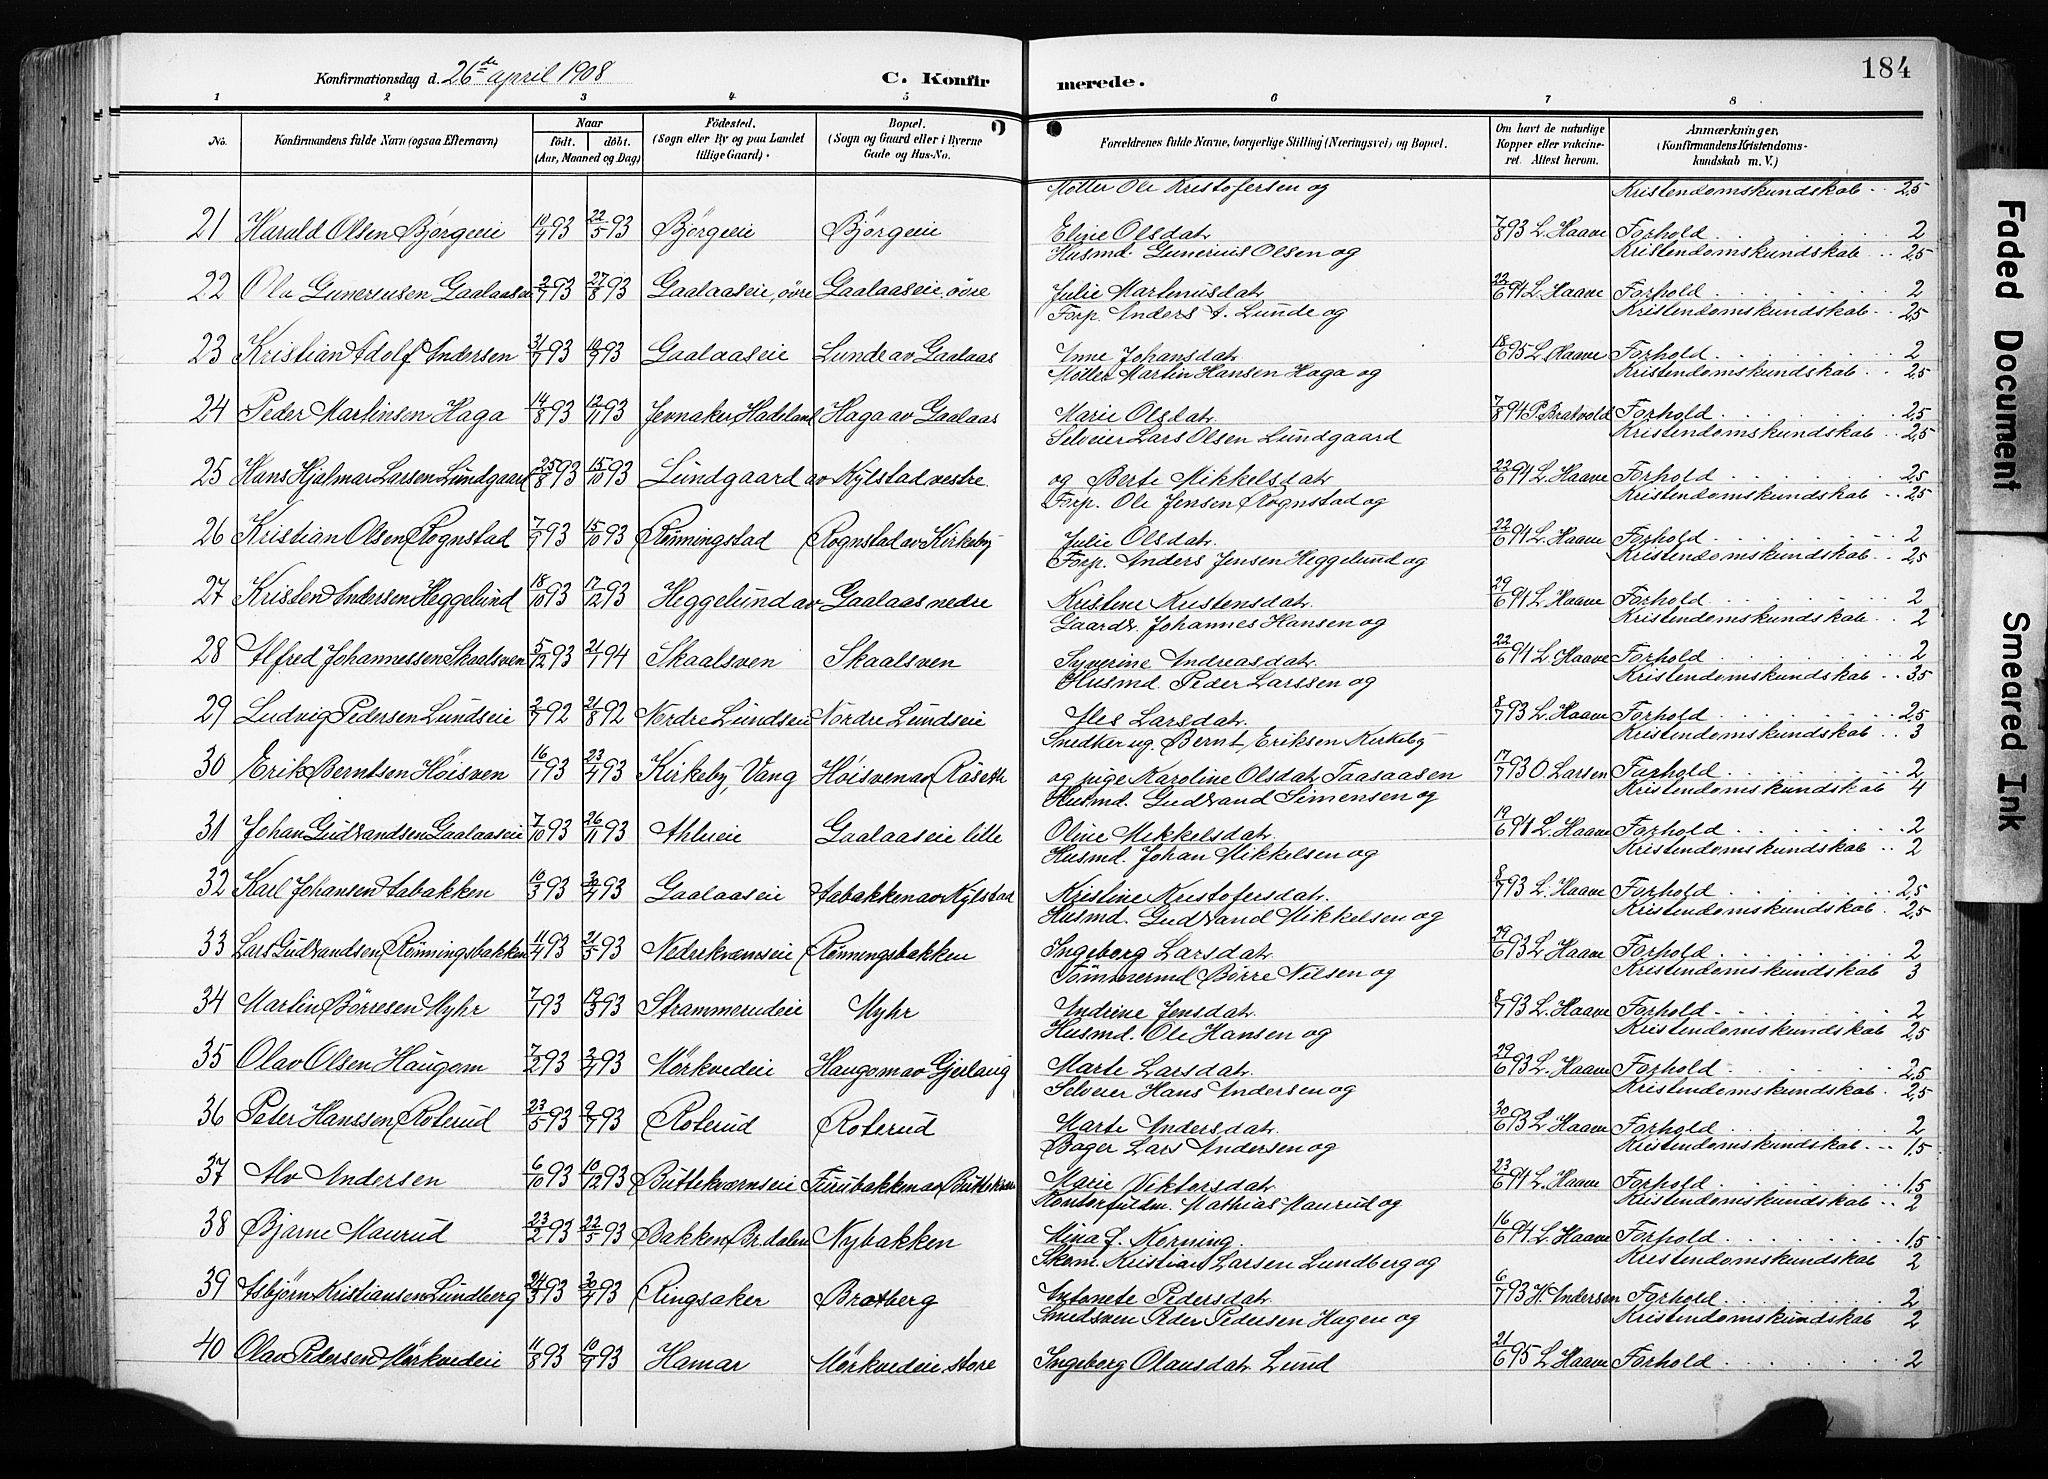 Konfirmationsdag d. 26de april 1908 C. Konfirmerede. 184
1 2 3 4 5 6 7 8
No. Konfirmandens fulde Navn (ogsaa Efternavn) Naar født. døbt. (Aar, Maaned og Dag) Fødested. (Sogn eller By og paa Landet tillige Gaard). Bopæl. (Sogn og Gaard eller i Byerne Gade og Hus-No. Forældrenes fulde Navne, borgerlige Stilling (Næringsvei) og Bopæl. Om havt de naturlige Kopper eller vaccineret. Attest herom. Anmærkninger. (Konfirmandens Kristendomskundskab m. V.)
Møller Ole Kristofersen og Kristendomskundskab 2,5
21 Harald Olsen Bjørgeeie 10/4 93 22/5 93 Bjørgeeie Bjørgeeie Eline Olsdat. 7/8 93 L. Haave Forhold 2
Husmd. Gunerius Olsen og Kristendomskundskab 2,5
22 Ola Guneriusen Gaalaaseie 2/7 93 27/8 93 Gaalaaseie, øvre Gaalaaseie, øvre Julie Martinusdat. 22/6 94 L. Haave Forhold 2
Forp. Anders A. Lunde og Kristendomskundskab 2,5
23 Kristian Adolf Andersen 31/7 93 10/9 93 Gaalaaseie Lunde av Gaalaas Anne Johansdat. 18/6 95 L. Haave Forhold 2
Møller Martin Hansen Haga og Kristendomskundskab 2,5
24 Peder Martinsen Haga 14/8 93 12/11 93 Jevnaker Hadeland Haga av Gaalaas Marie Olsdat. 7/8 94 P. Bratvold Forhold 2,5
Selveier Lars Olsen Lundgaard Kristendomskundskab 2,5
25 Hans Hjalmar Larsen Lundgaard 25/8 93 15/10 93 Lundgaard av Kylstad vestre og Berte Mikkelsdat. 22/6 94 L. Haave Forhold 2,5
Forp. Ole Jensen Rognstad og Kristendomskundskab 2,5
26 Kristian Olsen Rognstad 7/9 93 15/10 93 Rønningstad Rognstad av Kirkeby Julie Olsdat. 22/6 94 L. Haave Forhold 2
Forp. Anders Jensen Heggelund og Kristendomskundskab 2,5
27 Kristen Andersen Heggelund 18/10 93 17/12 93 Heggelund av Gaalaas nedre Kristine Kristensdat. 29/6 94 L. Haave Forhold 2
Gaardr. Johannes Hansen og Kristendomskundskab 2
28 Alfred Johannessen Skaalsven 5/12 93 21/1 94 Skaalsven Skaalsven Syverine Andreasdat. 22/6 94 L. Haave Forhold 2
Husmd. Peder Larssen og Kristendomskundskab 3,5
29 Ludvig Pedersen Lundseie 2/7 92 21/8 92 Nordre Lundseie Nordre Lundseie Ales Larsdat. 8/7 93 L. Haave Forhold 2,5
Snedker ug. Bernt Eriksen Kirkeby Kristendomskundskab 3
30 Erik Berntsen Høisven 16/1 93 23/4 93 Kirkeby, Vang Høisven av Røseth og pige Karoline Olsdat. Taasaasen 17/7 93 O. Larsen Forhold 2
Husmd. Gudbrand Simensen og Kristendomskundskab 4
31 Johan Gudbrandsen Gaalaaseie 7/10 93 26/11 93 Ahlueie Gaalaaseie lille Oline Mikkelsdat. 19/6 94 L. Haave Forhold 2
Husmd. Johan Mikkelsen og Kristendomskundskab 2
32 Karl Johansen Aabakken 10/3 93 30/4 93 Gaalaaseie Aabakken av Kylstad Kristine Kristofersdat. 8/7 93 L. Haave Forhold 2,5
Husmd. Gudbrand Mikkelsen og Kristendomskundskab 2,5
33 Lars Gudbrandsen Rønningsbakken 11/4 93 21/5 93 Nedrekværnseie Rønningsbakken Ingeborg Larsdat. 29/6 93 L. Haave Forhold 2
Tømmermd Børre Nilsen og Kristendomskundskab 3
34 Martin Børresen Myhr 7/1 93 19/3 93 Strammerudeie Myhr Andrine Jensdat. 8/7 93 L. Haave Forhold 2
Husmd. Ole Hansen og Kristendomskundskab 2,5
35 Olav Olsen Haugom 7/2 93 2/4 93 Mørkvedeie Haugom av Gjerlaug Marte Larsdat. 29/6 93 L. Haave Forhold 2,5
Selveier Hans Andersen og Kristendomskundskab 2,5
36 Peter Hanssen Roterud 23/5 93 9/7 93 Roterud Roterud Marte Andersdat. 30/6 93 L. Haave Forhold 2
Bager Lars Andersen og Kristendomskundskab 1,5
37 Alv Andersen 6/10 93 10/12 93 Buttekværnseie Furubakken av Buttekværn Marie Viktorsdat. 23/6 94 L. Haave Forhold 1,5
Kontorfuldm. Mathias Maurud og Kristendomskundskab 2
38 Bjarne Maurud 23/2 93 22/5 93 Bakken Br.dalen Nybakken Mina f. Korning 16/6 94 L. Haave Forhold 1,5
Skom. Kristian Larsen Lundberg og Kristendomskundskab 2
39 Asbjørn Kristiansen Lundberg 24/3 93 30/4 93 Ringsaker Bratberg Antonete Pedersdat. 6/7 93 H. Andersen Forhold 2
Smedsven Peder Pedersen Hagen og Kristendomskundskab 2
40 Olav Pedersen Mørkvedeie 11/8 93 10/9 93 Hamar Mørkvedeie, store Ingeborg Olausdat. Lund 21/6 95 L. Haave Forhold 2
Faded Document
Smeared Ink